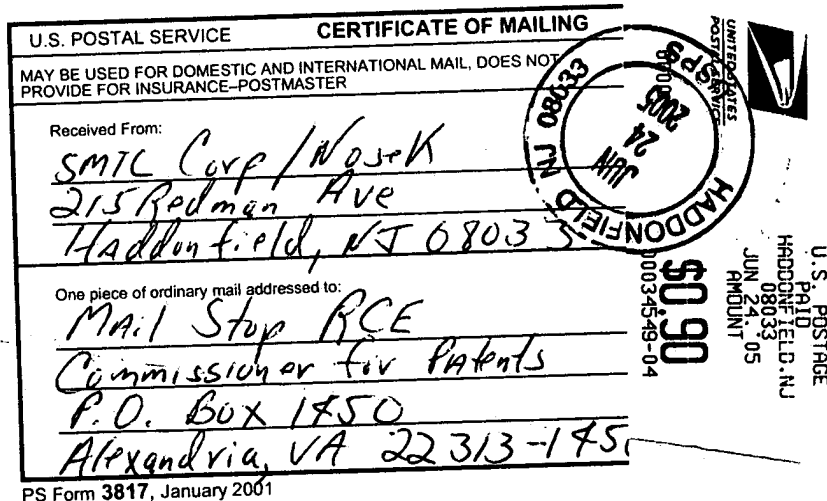 U.S. POSTAL SERVICE CERTIFICATE OF MAILING
MAY BE USED FOR DOMESTIC AND INTERNATIONAL MAIL, DOES NOT
PROVIDE FOR INSURANCE–POSTMASTER
Received From:
SMTC Corp / Nosek
215 Redman Ave
Haddonfield, NJ 0803
One piece of ordinary mail addressed to:
Mail Stop RCE
Commissioner for Patents
P.O. Box 1450
Alexandria, VA 22313-145
PS Form 3817, January 2001
HADDONFIELD NJ 08033
JUN
24
2005
USPS
UNITED STATES
POSTAL SERVICE
0000
$0.90
00034549-04
U.S. POSTAGE
PAID
HADDONFIELD,NJ
08033
JUN 24, 05
AMOUNT